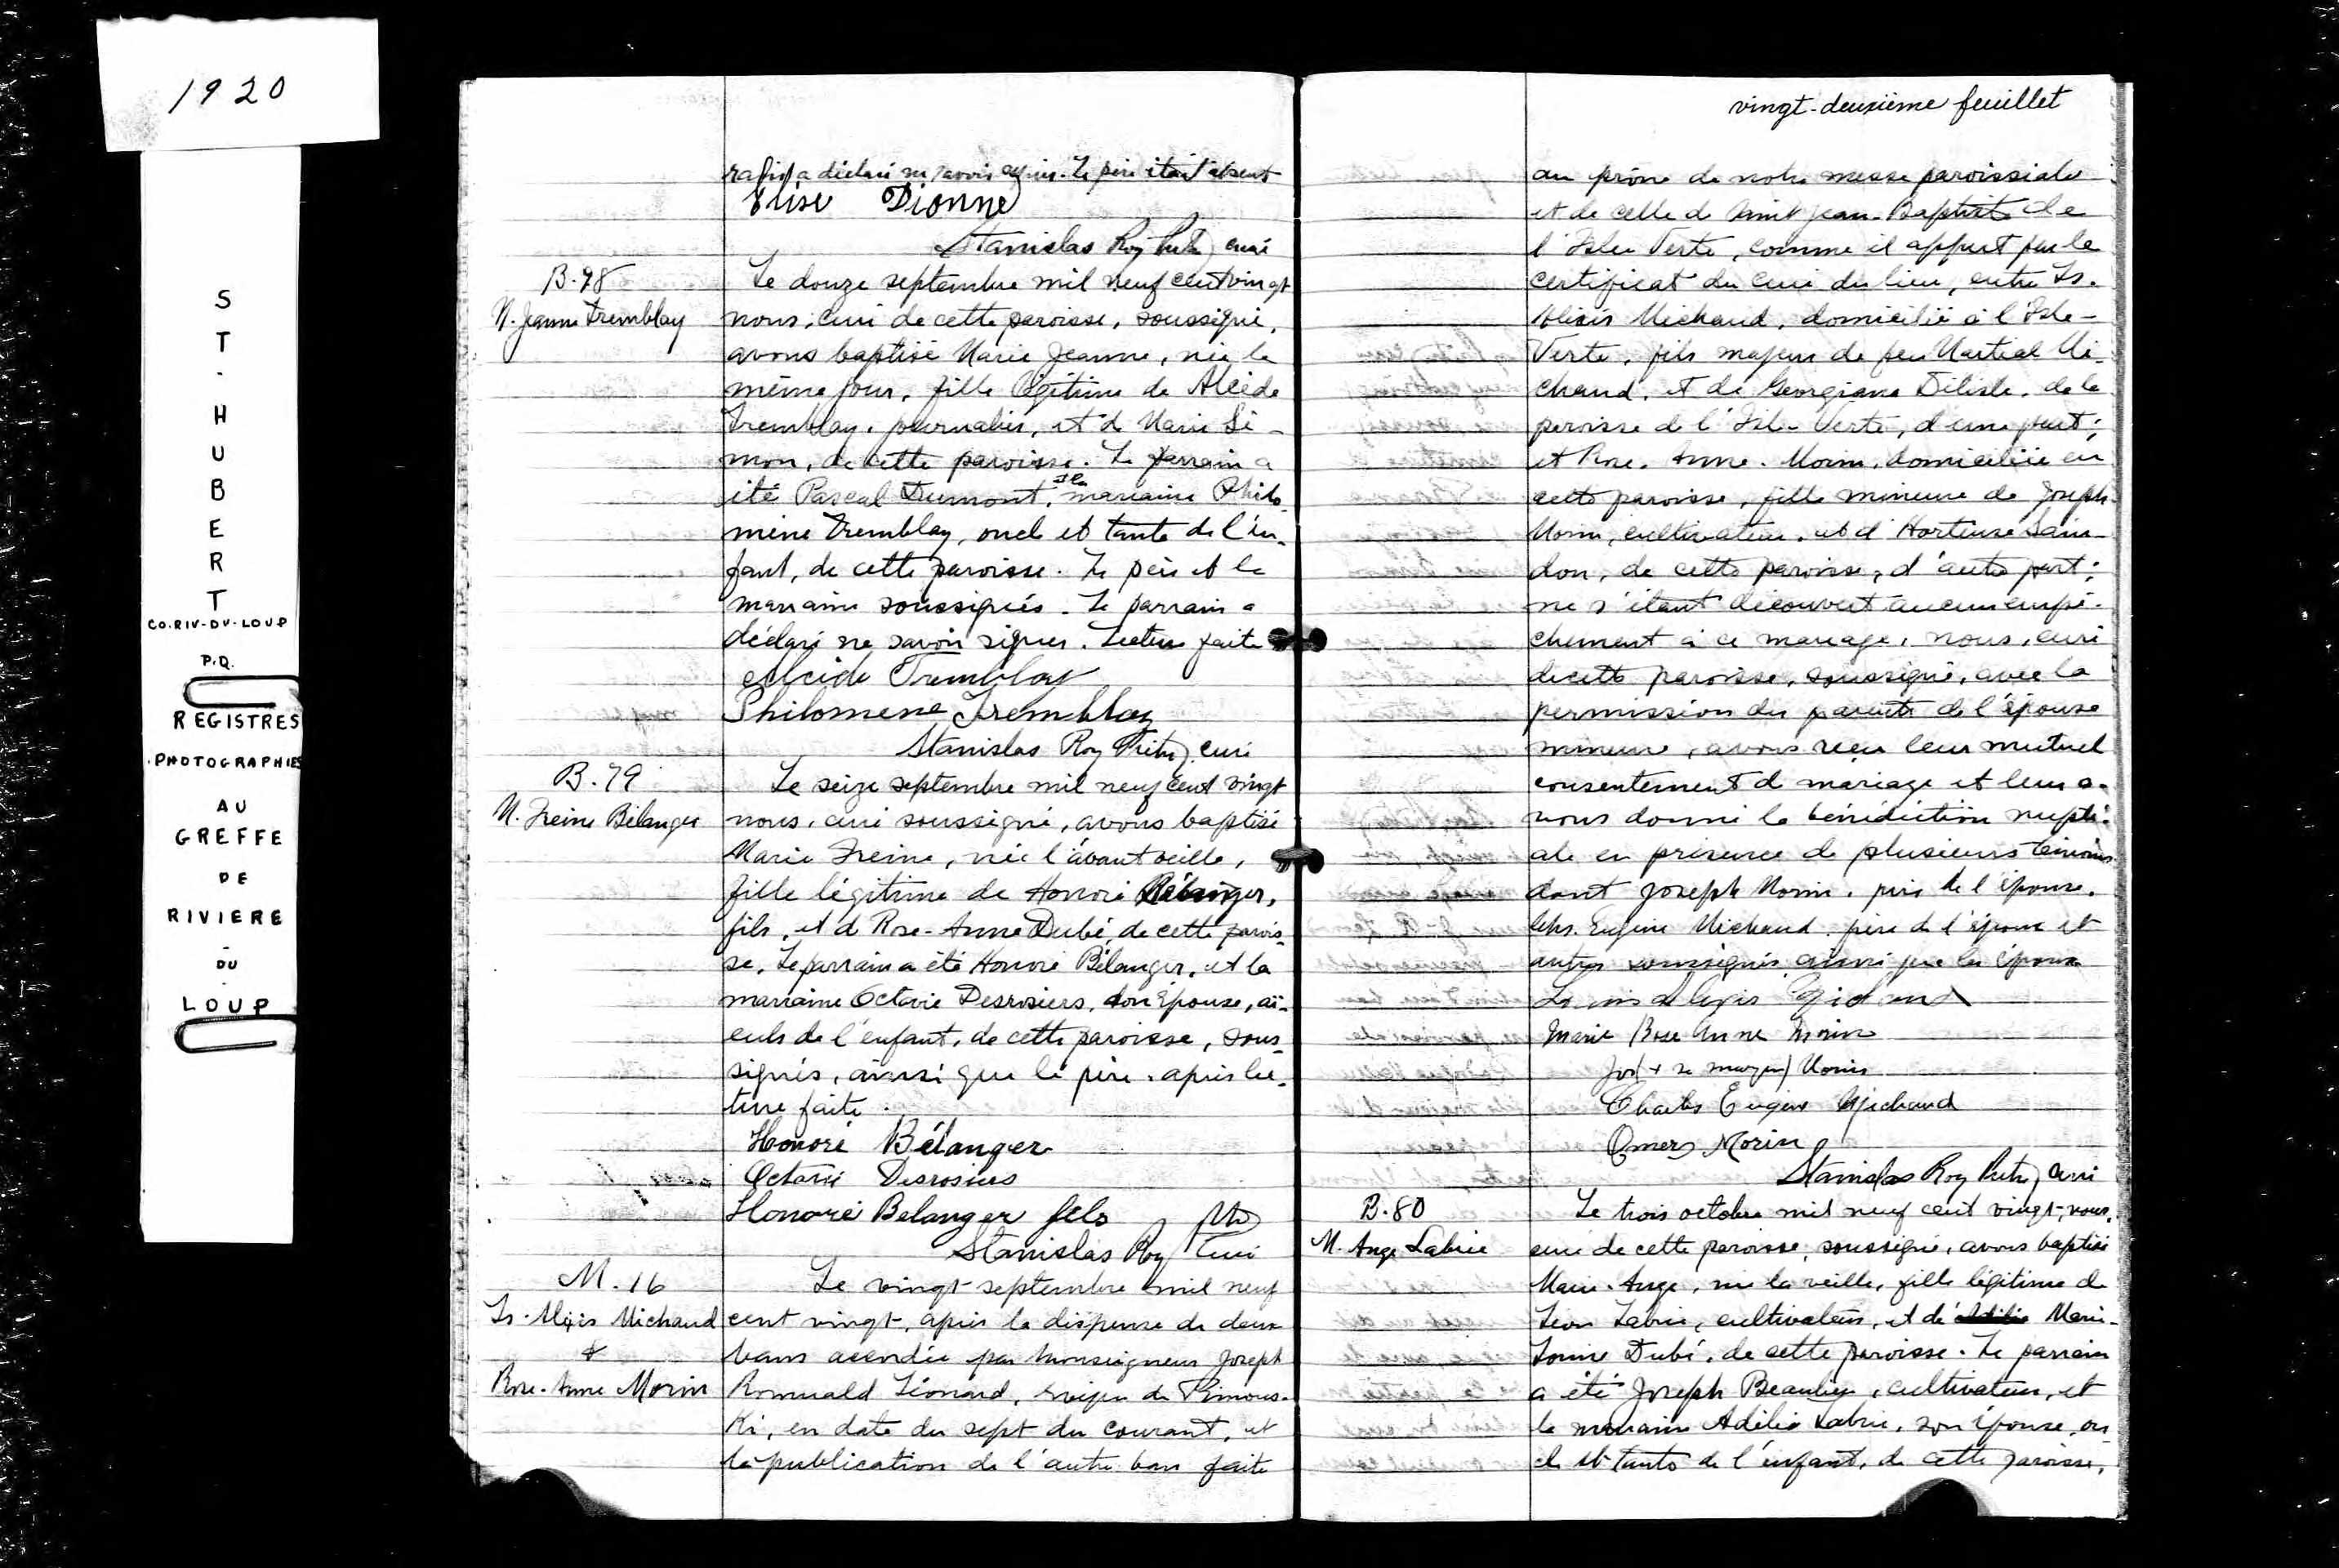 1920
ST. HUBERT
CO. RIV-DU-LOUP
P.Q.
REGISTRES
PHOTOGRAPHIES
AU
GREFFE
DE
RIVIERE
-
DU
-
LOUP
a déclaré ne savoir signer. Le père était absent
Elise Dionne
Stanislas Roy Ptre curé
B.78
M. Jeanne Tremblay
Le douze septembre mil neuf cent vingt
nous, curé de cette paroisse, soussigné,
avons baptisé Marie Jeanne, née le
même jour, fille légitime de Alcide
Tremblay, journalier, et d Marie Si-
mon, de cette paroisse. Le parrain a
été Pascal Dumont, et la marraine Philo-
mène Tremblay, oncle et tante de l'en-
fant, de cette paroisse. Le père et la
marraine soussignés. Le parrain a
déclaré ne savoir signer. Lecture faite
Alcide Tremblay
Philomene Tremblay
Stanislas Roy Ptre, curé
B.79
M. Irène Bélanger
Le seize septembre mil neuf cent vingt
nous, curé soussigné, avons baptisé
Marie Irène, née l'avant veille,
fille légitime de Honoré Bélanger,
fils, et d Rose-Anne Dubé, de cette parois-
se. Le parrain a été Honoré Bélanger, et la
marraine Octavie Desrosiers, son épouse, aï-
euls de l'enfant, de cette paroisse, sous-
signés, ainsi que le père, après lec-
ture faite.
Honoré Bélanger
Octavie Desrosiers
Honoré Belanger fils
Stanislas Roy Ptre Curé
M.16
Ls. Alexis Michaud
&
Rose-Anne Morin
Le vingt septembre mil neuf
cent vingt, après la dispense de deux
bans accordée par Monseigneur Joseph
Romuald Léonard, évêque de Rimous-
ki, en date du sept du courant, et
la publication de l'autre ban faite
vingt-deuxième feuillet
au prône de notre messe paroissiale
et de celle de Saint Jean-Baptiste de
l'Isle Verte, comme il appert par le
certificat du curé du lieu, entre Ls.
Alexis Michaud, domicilié à l'Isle-
Verte, fils majeur de feu Martial Mi-
chaud, et de Georgiana Dilisle, de la
paroisse de l'Isle-Verte, d'une part;
et Rose. Anne. Morin, domiciliée en
cette paroisse, fille mineure de Joseph
Morin, cultivateur, et d'Hortense Sain-
don, de cette paroisse, d'autre part;
ne s'étant découvert aucun empê-
chement à ce mariage, nous, curé
de cette paroisse, soussigné, avec la
permission des parents de l'épouse
mineure, avons reçu leur mutuel
consentement d mariage et leur a-
vons donné la bénédiction nupti-
ale en présence de plusieurs témoins
dont Joseph Morin, père de l'épouse,
Chs. Eugène Michaud, père de l'époux et
autres soussignés ainsi que les époux
Louis Alexis Michaud
Marie Rose Anne Morin
Jos + sa marque Morin
Charles Eugène Michaud
Omer Morin
Stanislas Roy Ptre, curé
B.80
M. Ange Labrie
Le trois octobre mil neuf cent vingt, nous,
curé de cette paroisse, soussigné, avons baptisé
Marie-Ange, née la veille, fille légitime de
Léon Labrie, cultivateur, et de Marie-
Louise Dubé, de cette paroisse. Le parrain
a été Joseph Beaulieu, cultivateur, et
la marraine Adélia Labrie, son épouse, on-
cle et tante de l'enfant, de cette paroisse,